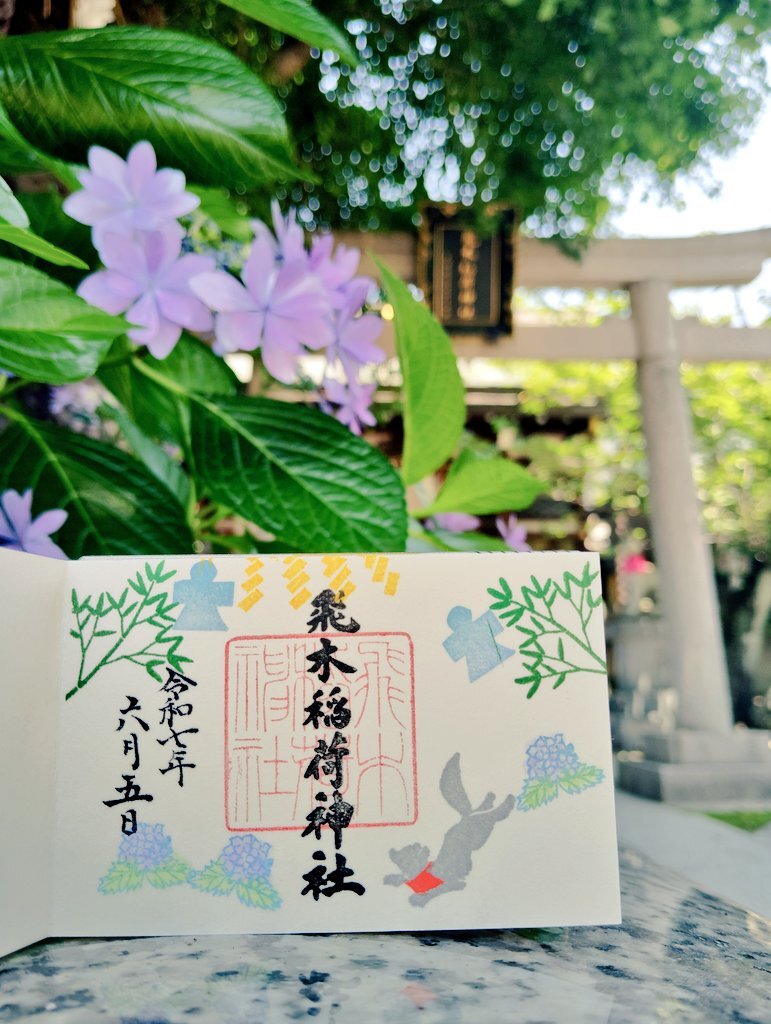 飛木稲荷神社
令和七年
六月五日
飛木
稲荷
神社